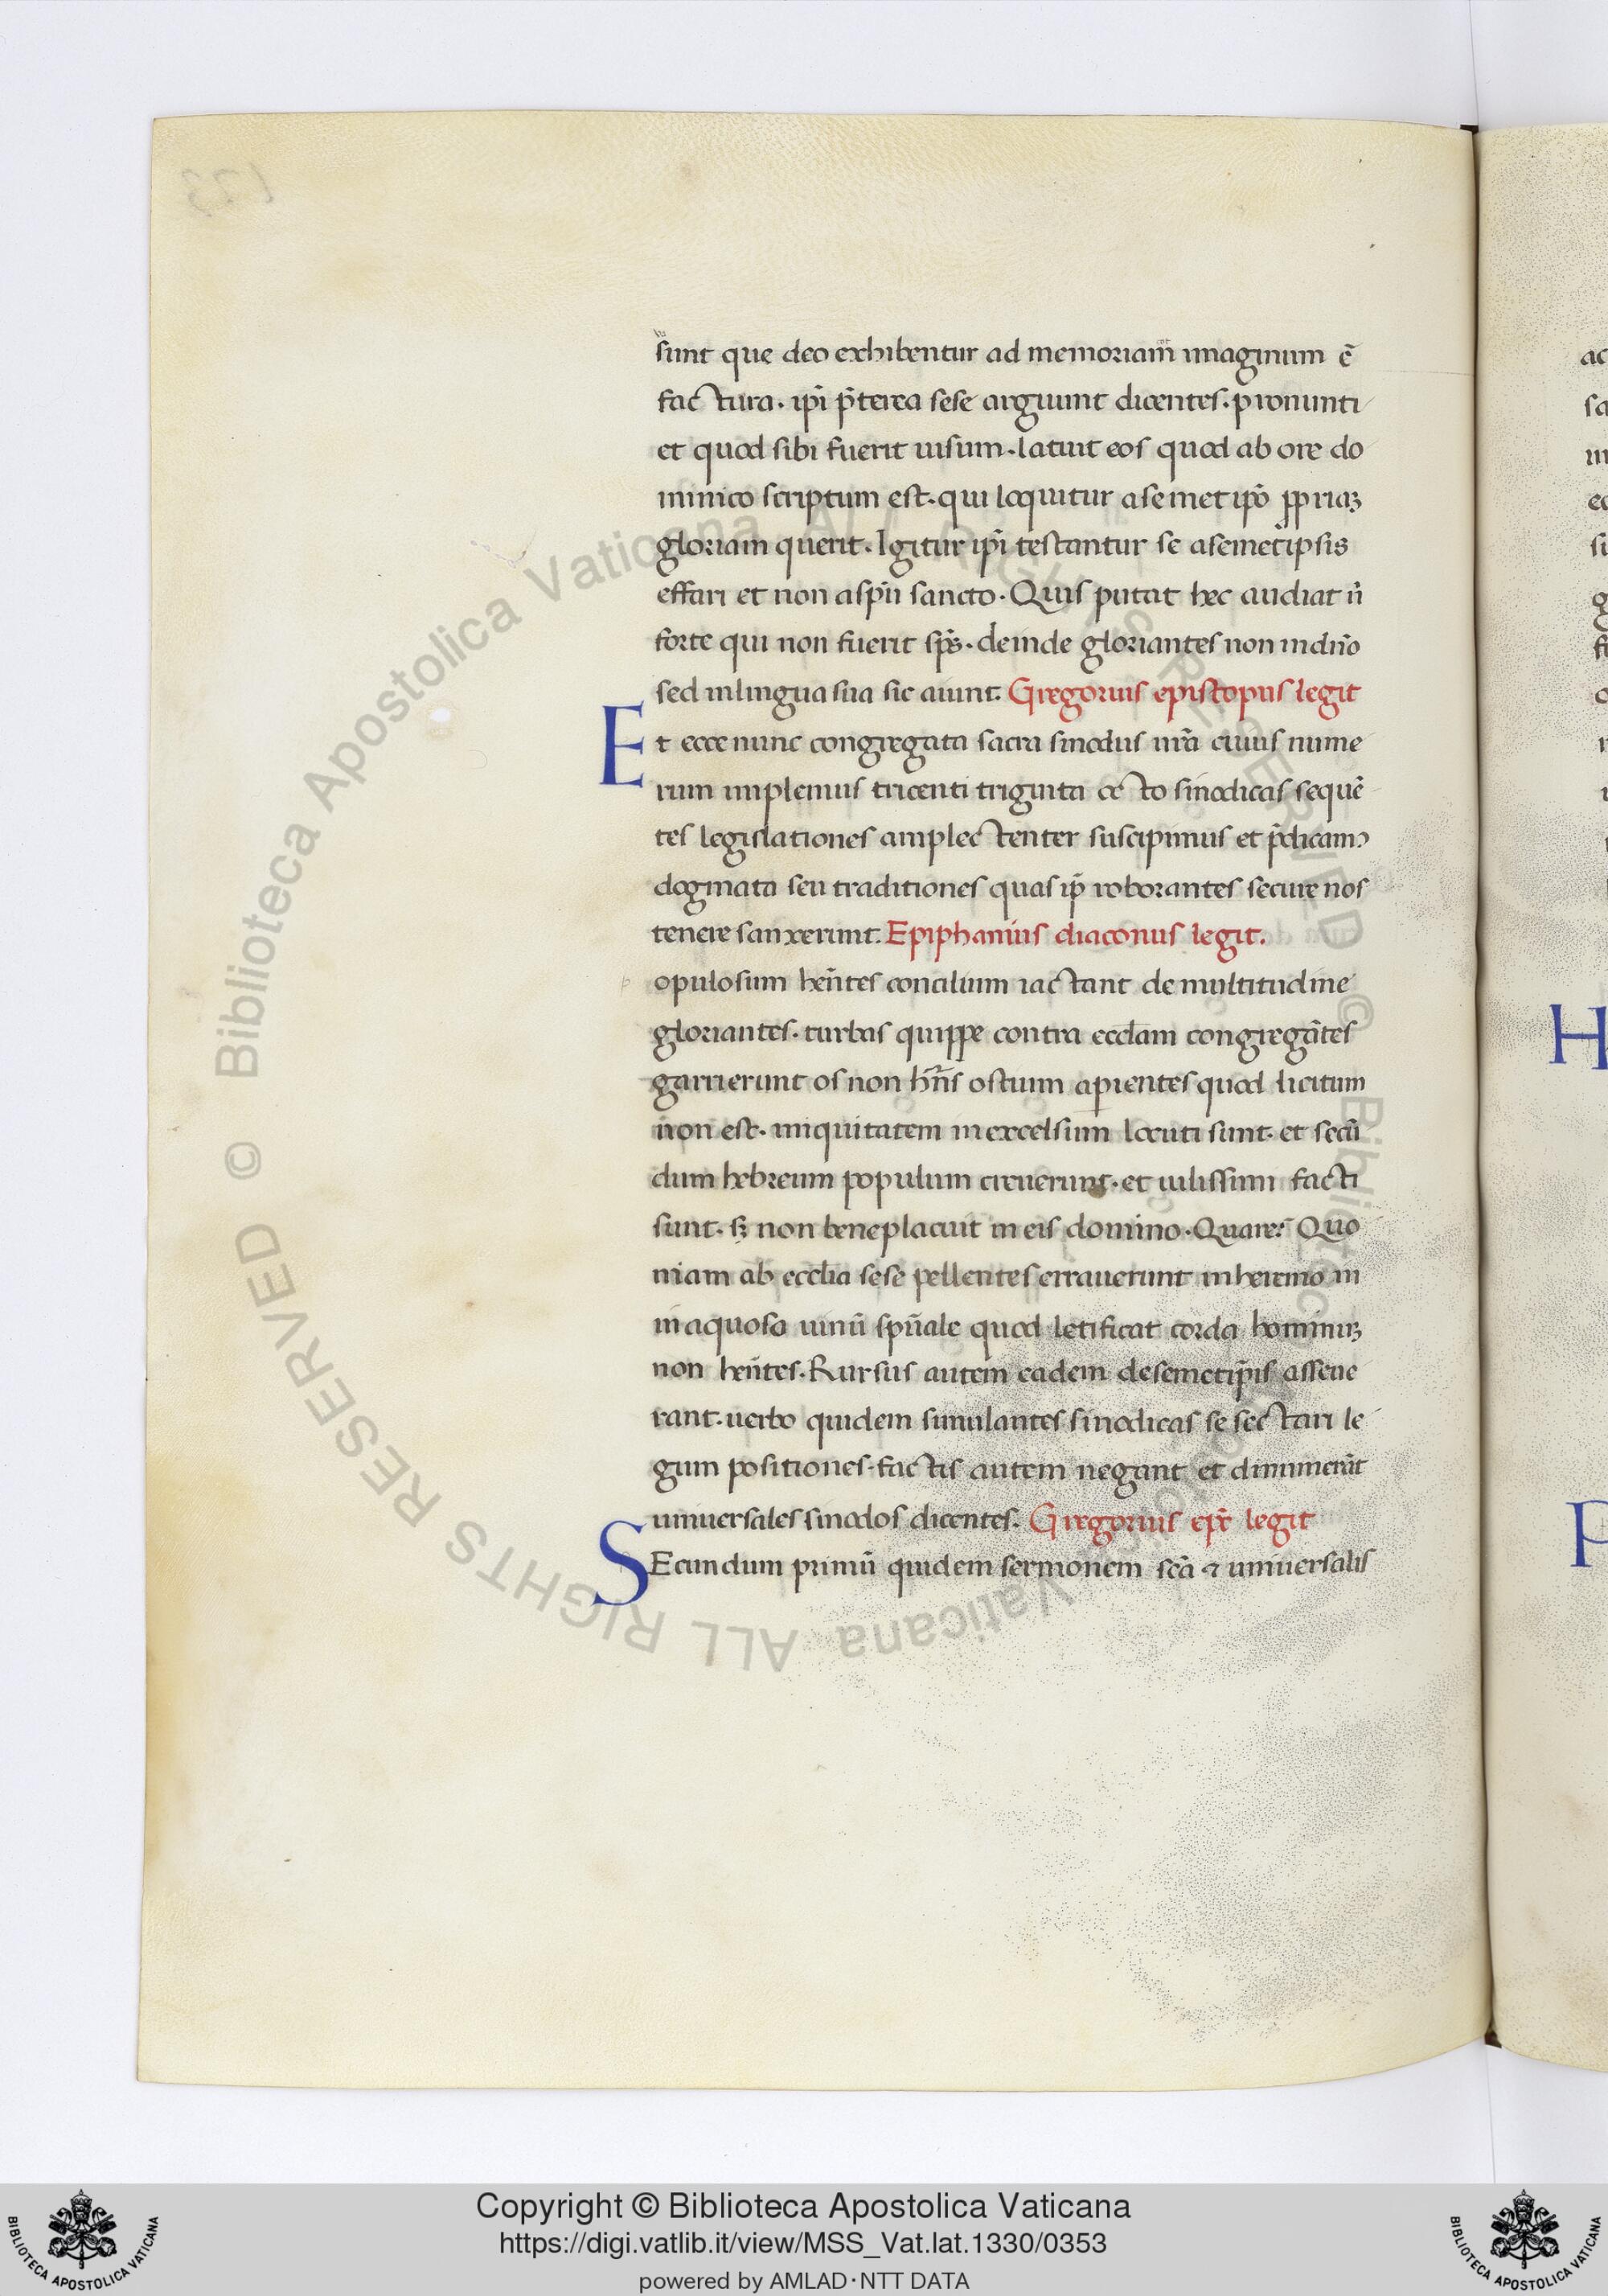 sunt que deo exhibentur ad memoriam imaginum ē
factura. ip̄i p̄terea sese arguunt dicentes. pronunti
et quod sibi fuerit uisum. latuit eos quod ab ore do
minico scriptum est. qui loquitur a semet ip̄o ꝓpriaꝫ
gloriam querit. Igitur ip̄i testantur se a semetipsis
effari et non a sp̄u sancto. Quis putat hec audiat n̄
forte qui non fuerit sp̄s. deinde gloriantes non in dn̄o
sed in lingua sua sic aiunt. Gregorius episcopus legit
Et ecce nunc congregata sacra sinodus nr̄a cuius nume
rum implemus tricenti triginta octo sinodicas sequē
tes legislationes amplectenter suscipimus et p̄dicamꝰ
dogmata seu traditiones quas ip̄i roborantes secure nos
tenere sanxerunt. Epiphanius diaconus legit.
opulosum hēntes concilium iactant de multitudine
gloriantes. turbas quippe contra eccl̄am congregātes
garrierunt os non hn̄s ostium aperientes quod licitum
non est. iniquitatem in excelsum locuti sunt. et secū
dum hebreum populum creuerunt. et uilissimi facti
sunt. sꝫ non beneplacuit in eis domino. Quare? Quo
niam ab eccl̄ia sese pellentes errauerunt in heremo in
inaquosa uinū sp̄uale quod letificat corda hominuꝫ
non hēntes. Rursus autem eadem de semetip̄is asseue
rant. uerbo quidem simulantes sinodicas se sectari le
gum positiones. factis autem negant et dinumerāt
uniuersales sinodos dicentes. Gregorius ep̄s legit
SEcundum primū quidem sermonem sc̄a ⁊ uniuersalis
Copyright © Biblioteca Apostolica Vaticana
https://digi.vatlib.it/view/MSS_Vat.lat.1330/0353
powered by AMLAD·NTT DATA
© Biblioteca Apostolica Vaticana ALL RIGHTS RESERVED © Biblioteca Apostolica Vaticana ALL RIGHTS RESERVED
BIBLIOTECA APOSTOLICA VATICANA
BIBLIOTECA APOSTOLICA VATICANA